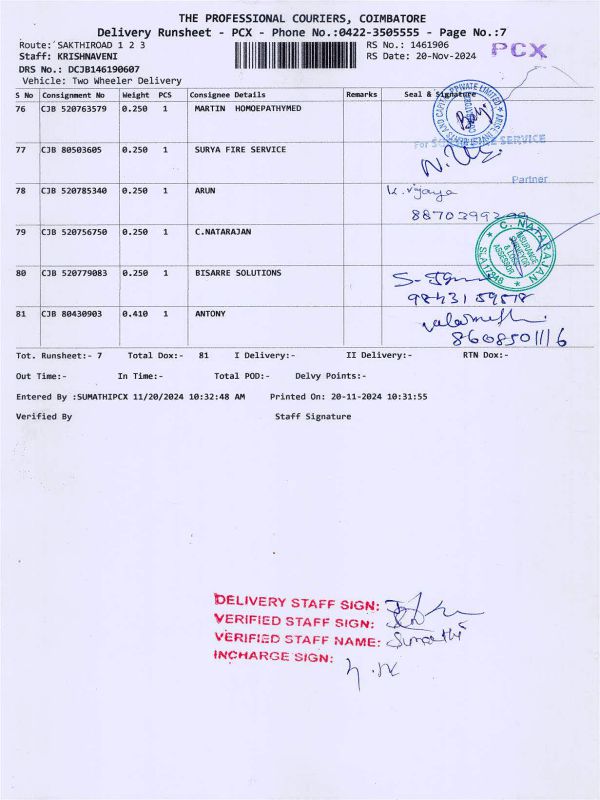 THE PROFESSIONAL COURIERS, COIMBATORE
Delivery Runsheet - PCX - Phone No.:0422-3505555 - Page No.:7
Route: SAKTHIROAD 1 2 3
RS No.: 1461906
PCX
Staff: KRISHNAVENI
RS Date: 20-Nov-2024
DRS No.: DCJB146190607
Vehicle: Two Wheeler Delivery
S No Consignment No Weight PCS Consignee Details Remarks Seal & Signature
76 CJB 520763579 0.250 1 MARTIN HOMOEPATHYMED
77 CJB 80503605 0.250 1 SURYA FIRE SERVICE
For SERVICE
Partner
78 CJB 520785340 0.250 1 ARUN K. Vijaya
79 CJB 520756750 0.250 1 C.NATARAJAN
C. NATARAJAN
INSURANCE
SURVEYOR
ASSESSOR
80 CJB 520779083 0.250 1 BISARRE SOLUTIONS
81 CJB 80430903 0.410 1 ANTONY
Tot. Runsheet:- 7 Total Dox:- 81 I Delivery:- II Delivery:- RTN Dox:-
Out Time:- In Time:- Total POD:- Delvy Points:-
Entered By :SUMATHIPCX 11/20/2024 10:32:48 AM Printed On: 20-11-2024 10:31:55
Verified By Staff Signature
DELIVERY STAFF SIGN:
VERIFIED STAFF SIGN:
VERIFIED STAFF NAME: Sumathi
INCHARGE SIGN: